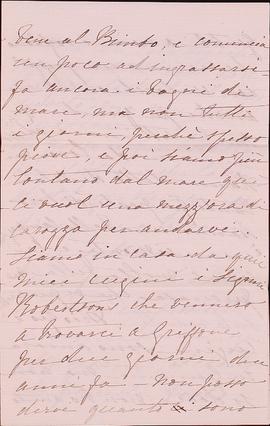 bene al Bimbo, e comincia
un poco ad ingrassarsi
fa ancora i bagni di
mare, ma non tutti
i giorni, perchè spesso
piove, e poi siamo più
lontano dal mare qui
ci vuol una mezz'ora di
carozza per andarvi.
Siamo in casa da quei
miei cugini i Signori
Robertson che vennero
a trovarci a Griffone
per due giorni due
anni fa - non posso
dirvi quanto sono